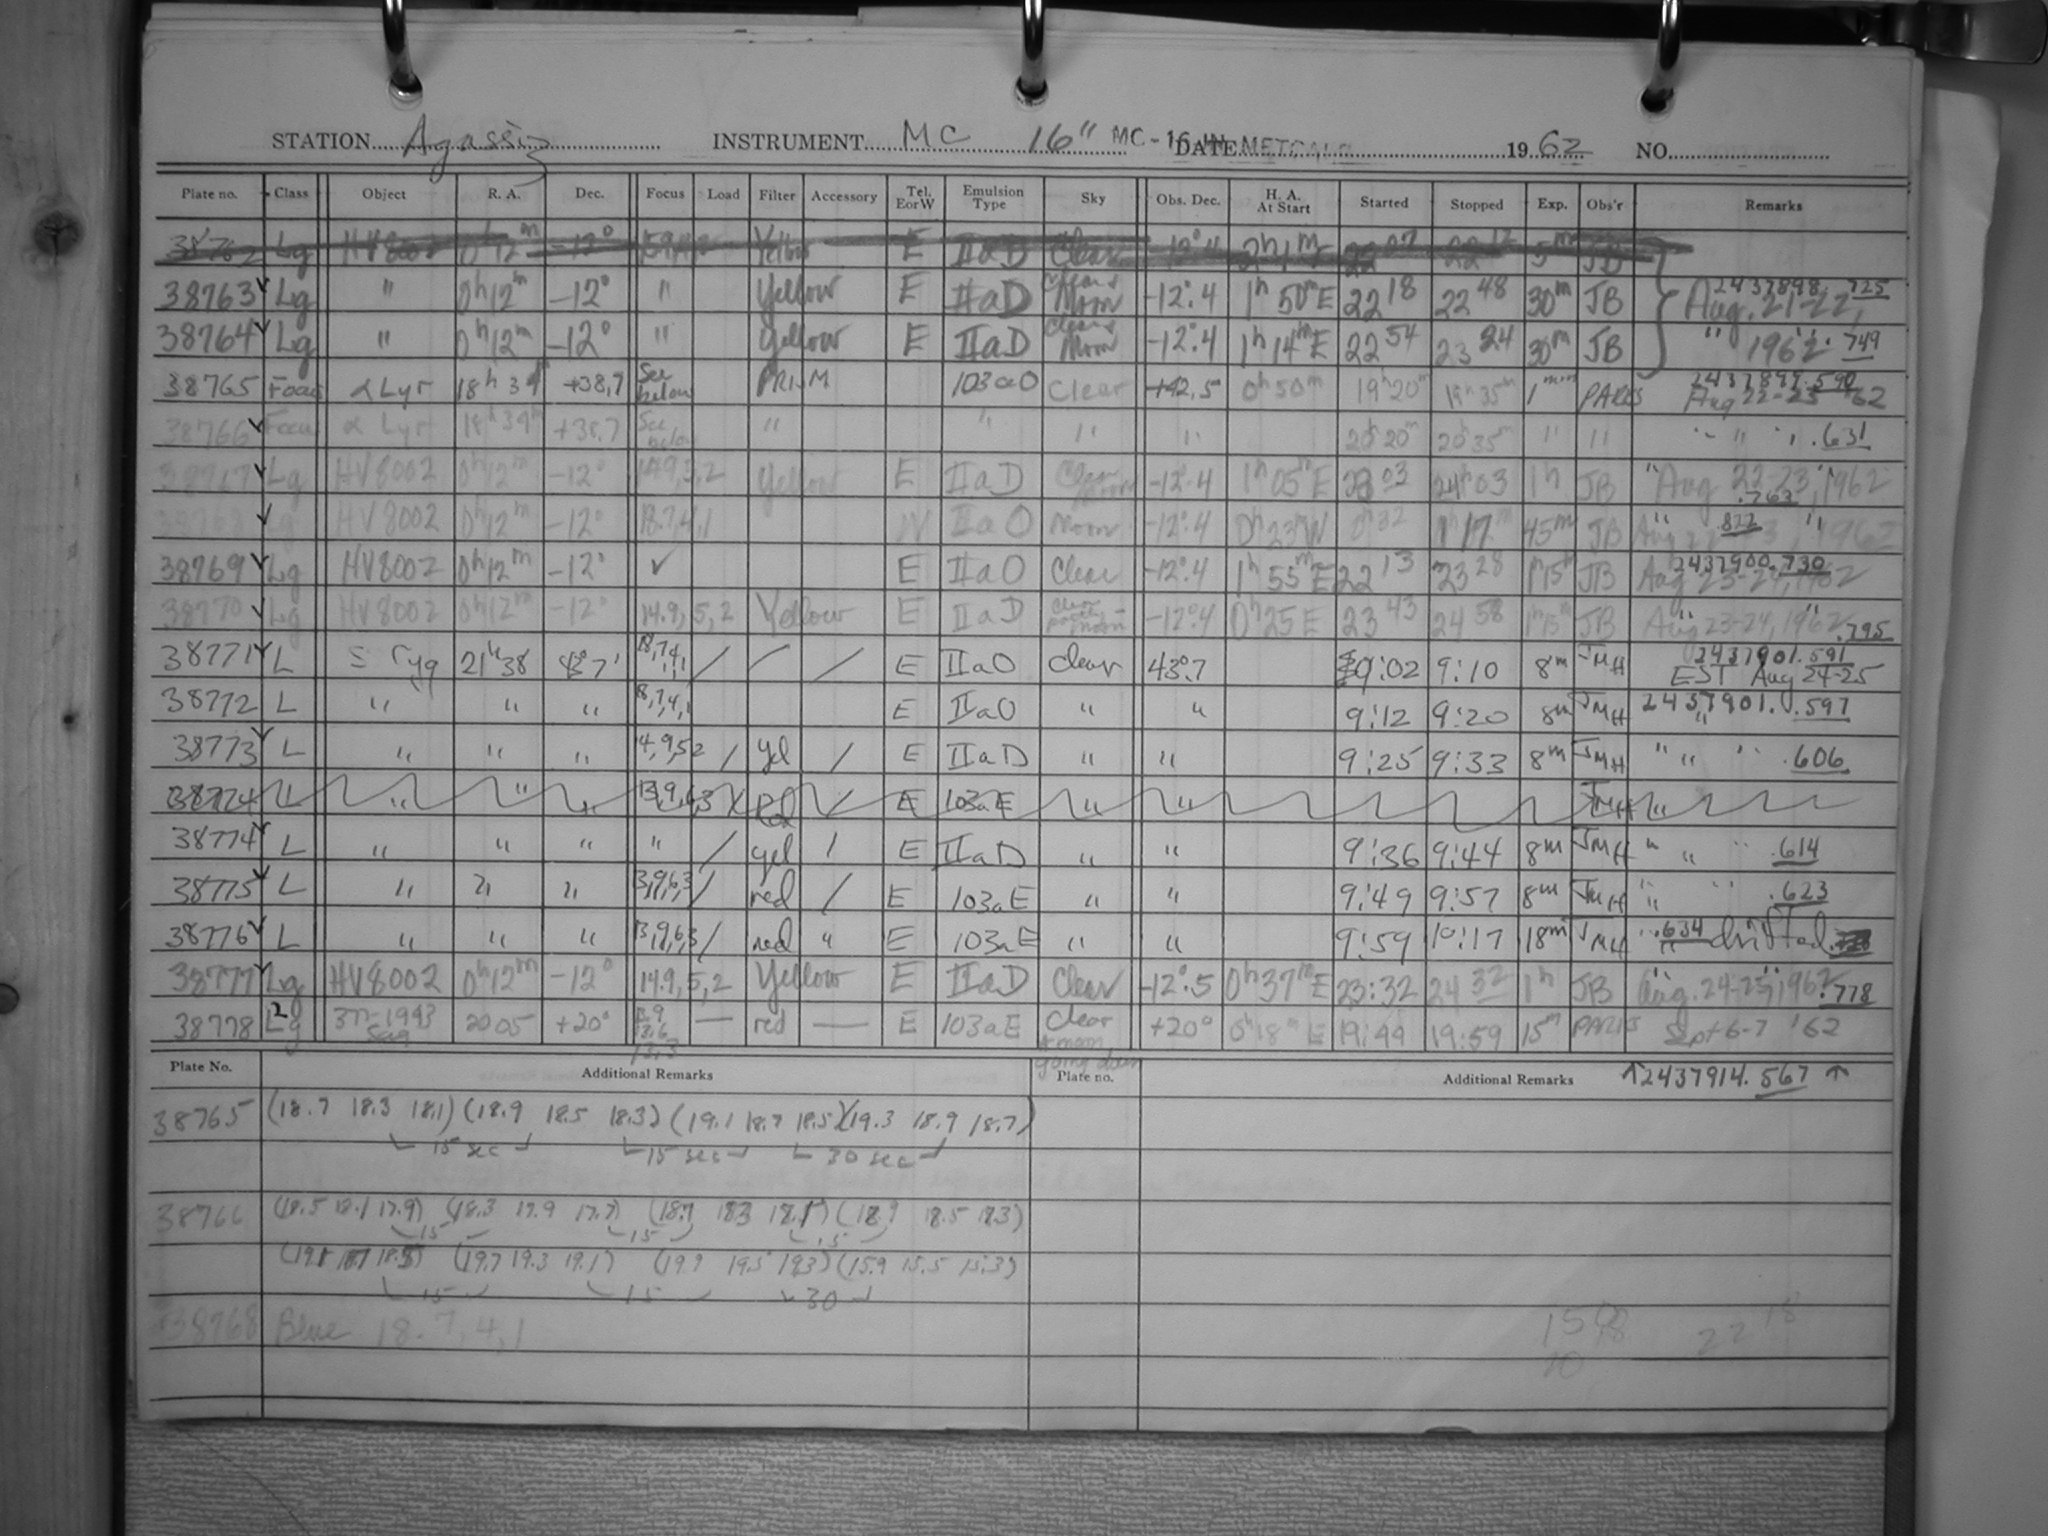 STATION Agassiz INSTRUMENT MC 16" MC-16 IN METCALF DATE 1962 NO.
Plate no. Class Object R. A. Dec. Focus Load Filter Accessory Tel. E or W Emulsion Type Sky Obs. Dec. H. A. At Start Started Stopped Exp. Obs'r Remarks
38762 Lg HV8002 0h12m -12° Yellow E IIaD Clear -12°.4 2h1mE 22 07 22 12 5m JB
38763 Lg " 0h12m -12° " Yellow E IIaD Clear Moon -12°.4 1h50mE 22 18 22 48 30m JB 2437898.725 Aug. 21-22,
38764 Lg " 0h12m -12° " Yellow E IIaD Clear Moon -12°.4 1h14mE 22 54 23 24 30m JB " 1962 " .749
38765 Focus α Lyr 18h 39m +38.7 See below PRISM 103aO Clear +42.5 0h50m 19h20m 19h35m 1min PARKS 2437899.590 Aug 22-23 '62
38766 Focus α Lyr 18h39m +38.7 See below " " " " 20h20m 20h35m " " " " " .631
38767 Lg HV8002 0h12m -12° 14.9,5,2 Yellow E IIaD Clear Moon -12°.4 1h05mE 23 03 24h03 1h JB "Aug 22-23, 1962" .763
38768 Lg HV8002 0h12m -12° 18.7,4,1 W IIaO Moon -12°.4 0h23mW 0h32 1h17m 45m JB Aug 22-23, 1962 .822
38769 Lg HV8002 0h12m -12° ✓ E IIaO Clear -12°.4 1h55mE 22 13 23 28 1h15m JB 2437900.730 Aug 23-24, 1962
38770 Lg HV8002 0h12m -12° 14.9,5,2 Yellow E IIaD Clear -12°.4 0h25E 23 43 24 58 1h15m JB Aug 23-24, 1962 .795
38771 L Cyg 21h38 43°7' 18,7,4,1 / / / E IIaO clear 43°.7 9:02 9:10 8m JMH 2437901.591 EST Aug 24-25
38772 L " " " 18,7,4,1 E IIaO " " 9:12 9:20 8m JMH 2437901.597 "
38773 L " " " 14,9,5,2 / yel / E IIaD " " 9:25 9:33 8m JMH " " " .606
38774 L " " " 13,9,6,3 Red / E 103aE " " JMH "
38774 L " " " " / yel / E IIaD " " 9:36 9:44 8m JMH " " " .614
38775 L " " " 13,9,6,3 / red / E 103aE " " 9:49 9:57 8m JMH " " " .623
38776 L " " " 13,9,6,3 / red " E 103aE " " 9:59 10:17 18m JMH " .634 " drifted
38777 Lg HV8002 0h12m -12° 14.9,5,2 Yellow E IIaD Clear -12°.5 0h37mE 23:32 24 32 1h JB Aug. 24-25, 1962 .778
38778 Lg 377-1943 Sag 20 05 +20° 13.9 13.6 13.3 — red — E 103aE Clear & moon going down +20° 0h18mE 19:44 19:59 15m PARKS Sept 6-7 '62
Plate No. Additional Remarks Plate no. Additional Remarks ↑2437914.567 ↑
38765 (18.7 18.3 18.1) (18.9 18.5 18.3) (19.1 18.7 18.5) (19.3 18.9 18.7)
15 sec 15 sec 30 sec
38766 (18.5 18.1 17.9) (18.3 17.9 17.7) (18.7 18.3 18.1) (18.9 18.5 18.3)
15 15 15
(19.1 18.7 18.5) (19.7 19.3 19.1) (19.9 19.5 19.3) (15.9 15.5 15.3)
15 15 30
38768 Blue 18.7,4,1
22 18